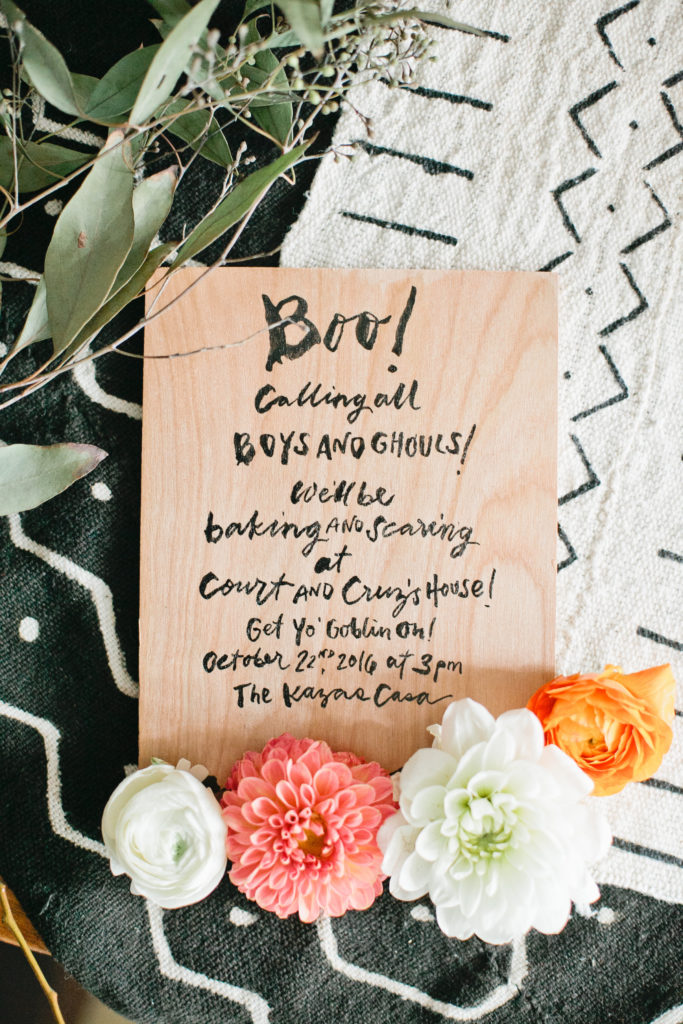 Boo!
Calling all
BOYS AND GHOULS!
We'll be
baking AND scaring
at
Court AND Cruz's House!
Get Yo' Goblin On!
October 22ND, 2016 at 3pm
The Kazas Casa